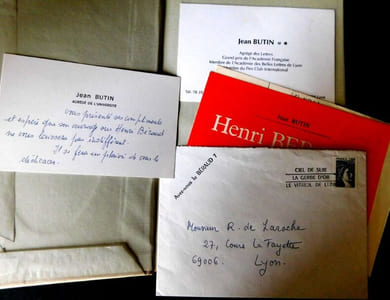 Jean BUTIN
Agrégé des Lettres
Grand prix de l'Académie Française
Membre de l'Académie des Belles Lettres de Lyon
du Pen Club International
Jean BUTIN
AGRÉGÉ DE L'UNIVERSITÉ
vous présente ses compliments
et espère que son ouvrage sur Henri Béraud
ne vous laissera pas indifférent.
Il se fera un plaisir de vous le
dédicacer.
Jean BUTIN
Henri BER
Avez-vous lu BÉRAUD ?
CIEL DE SUIE
LA GERBE D'OR
LE VITRIOL DE LUNE
Monsieur R. de Laroche
27, Cours La Fayette
69006. Lyon.